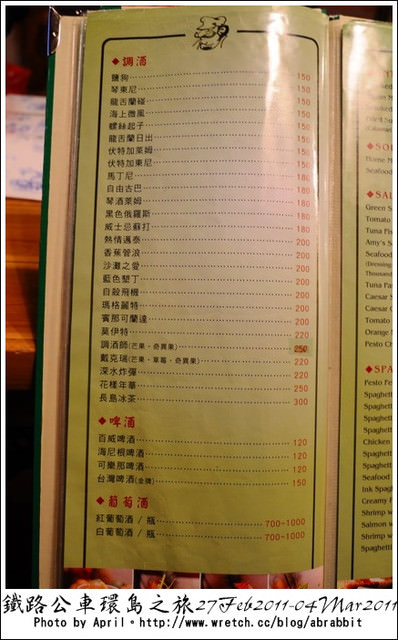 ◆調酒
鹽狗 150
琴東尼 150
龍舌蘭碰 150
海上微風 150
螺絲起子 150
龍舌蘭日出 150
伏特加萊姆 150
伏特加東尼 150
馬丁尼 180
自由古巴 180
琴酒萊姆 180
黑色俄羅斯 180
威士忌蘇打 180
熱情邁泰 200
香蕉管浪 200
沙灘之愛 200
藍色墾丁 200
自殺飛機 200
瑪格麗特 200
賓那可蘭達 200
莫伊特 220
調酒師(芒果、奇異果) 250
戴克瑞(芒果、草莓、奇異果) 220
深水炸彈 220
花樣年華 250
長島冰茶 300
◆啤酒
百威啤酒 120
海尼根啤酒 120
可樂那啤酒 120
台灣啤酒(金牌) 150
◆葡萄酒
紅葡萄酒 / 瓶 700-1000
白葡萄酒 / 瓶 700-1000
◆SOU
Home M
Seafood
◆SAL
Green S
Tomato
Tuna Fis
Amy's Sa
Seafood
(Dressing
Thousand
Tuna Pa
Caesar S
Caesar
Tomato
Orange
Pesto Ch
◆SPA
Pesto Fe
Spaghett
Spaghett
Spaghett
Chicken
Spaghett
Spaghett
Seafood
Ink Spag
Creamy F
Shrimp w
Salmon w
Shrimp w
Spaghetti
鐵路公車環島之旅27Feb2011-04Mar2011
Photo by April。http://www.wretch.cc/blog/abrabbit